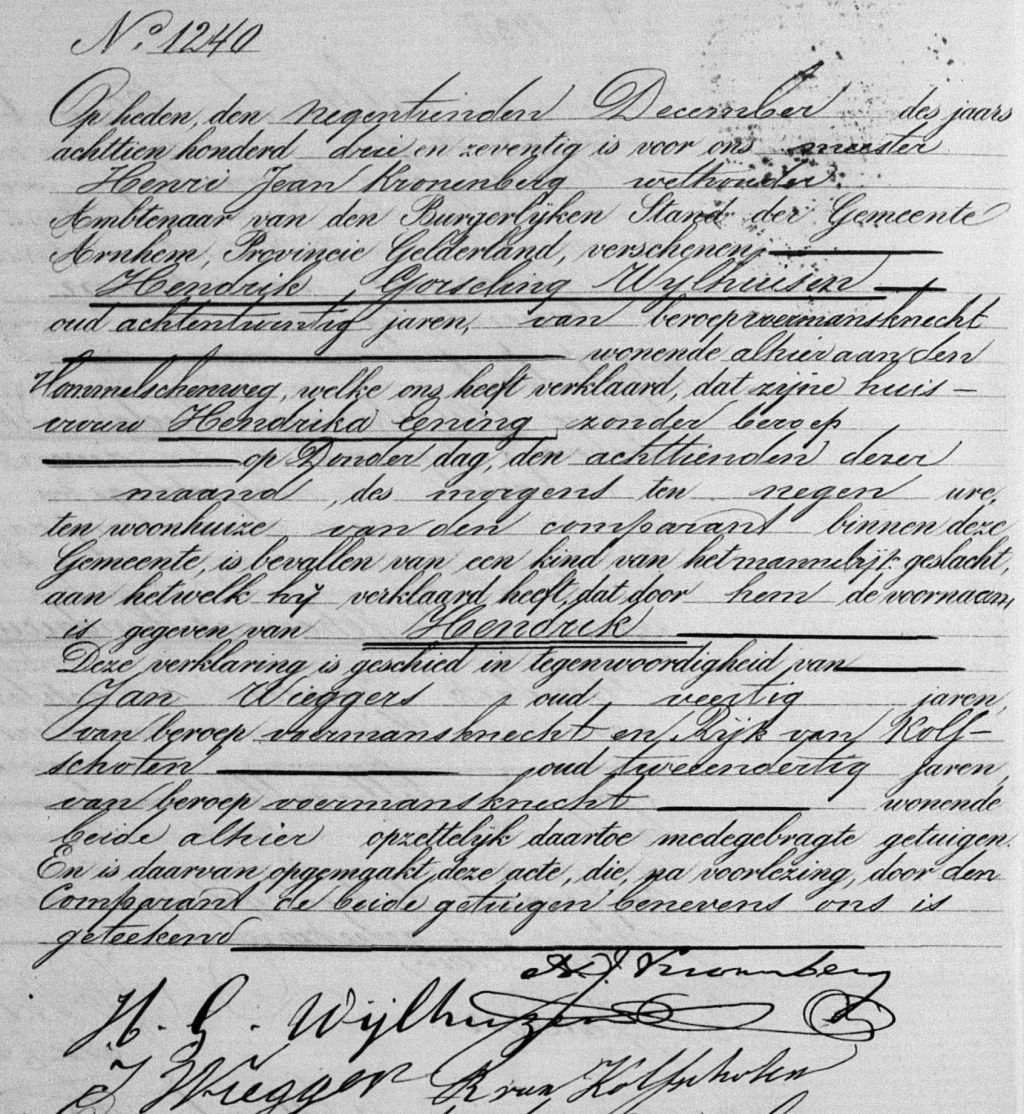 No. 1240
Op heden, den negentienden December des jaars
achttien honderd drie en zeventig is voor ons meester
Henri Jean Kronenberg wethouder
Ambtenaar van den Burgerlijken Stand der Gemeente
Arnhem, Provincie Gelderland, verschenen,
Hendrik Gorseling Wylhuisen
oud achtentwintig jaren, van beroep voermansknecht
wonende alhier aan den
Hommelschenweg, welke ons heeft verklaard, dat zijne huis-
vrouw Hendrika Eening zonder beroep
op Donder dag, den achttienden dezer
maand, des morgens ten negen ure,
ten woonhuize van den comparant binnen deze
Gemeente, is bevallen van een kind van het mannelijk geslacht,
aan hetwelk hij verklaard heeft, dat door hem de voornaam
is gegeven van Hendrik
Deze verklaring is geschied in tegenwoordigheid van
Jan Wieggers, oud veertig jaren,
van beroep voermansknecht en Rijk van Kolf-
schoten oud tweeendertig jaren
van beroep voermansknecht wonende
beide alhier opzettelijk daartoe medegebragte getuigen.
En is daarvan opgemaakt deze acte, die, na voorlezing, door den
Comparant de beide getuigen benevens ons is
geteekend
H. J. Kronenberg
H. G. Wijlhuizen
J Wiegger R van Kolfschoten